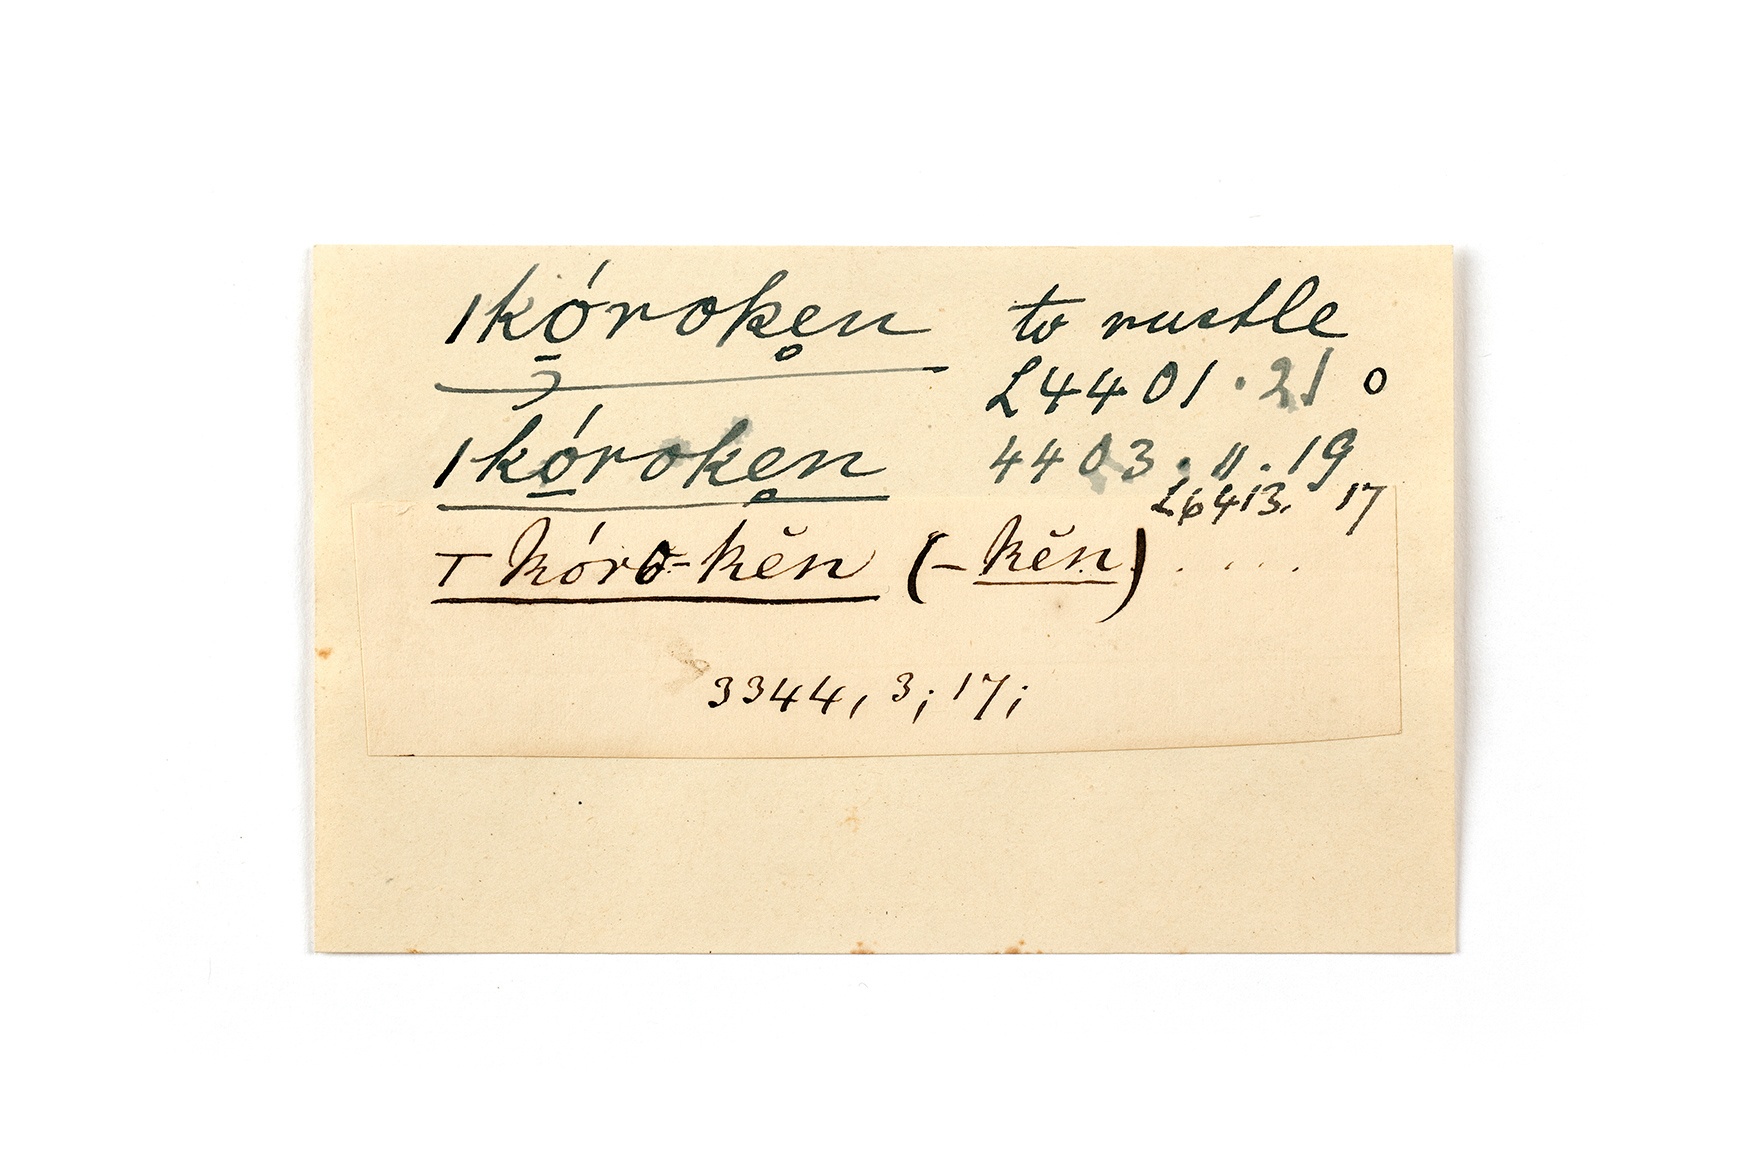 |kó̱roke̥n to rustle
L4401.21 o
|kó̱roke̥n 4403.11.19
L6413. 17
T kóro-kĕn (-kĕn) . . . .
3344, 3; 17;